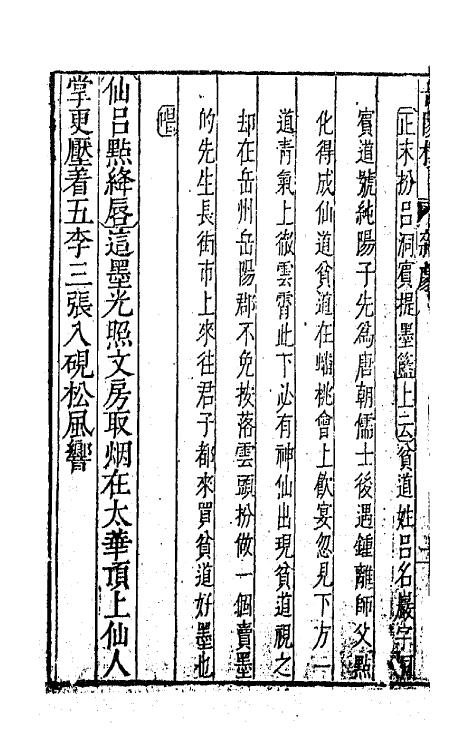 岳陽樓　雜劇
正末扮呂洞賓提墨籃上云貧道姓呂名巖字洞
賓道號純陽子先爲唐朝儒士後遇鍾離師父點
化得成仙道貧道在蟠桃會上飮宴忽見下方一
道青氣上徹雲霄此下必有神仙出現貧道視之
却在岳州岳陽郡不免按落雲頭扮做一個賣墨
的先生長街市上來往君子都來買貧道好墨也
唱
仙呂點絳唇這墨光照文房取烟在太華頂上仙人
掌更壓着五李三張入硯松風響